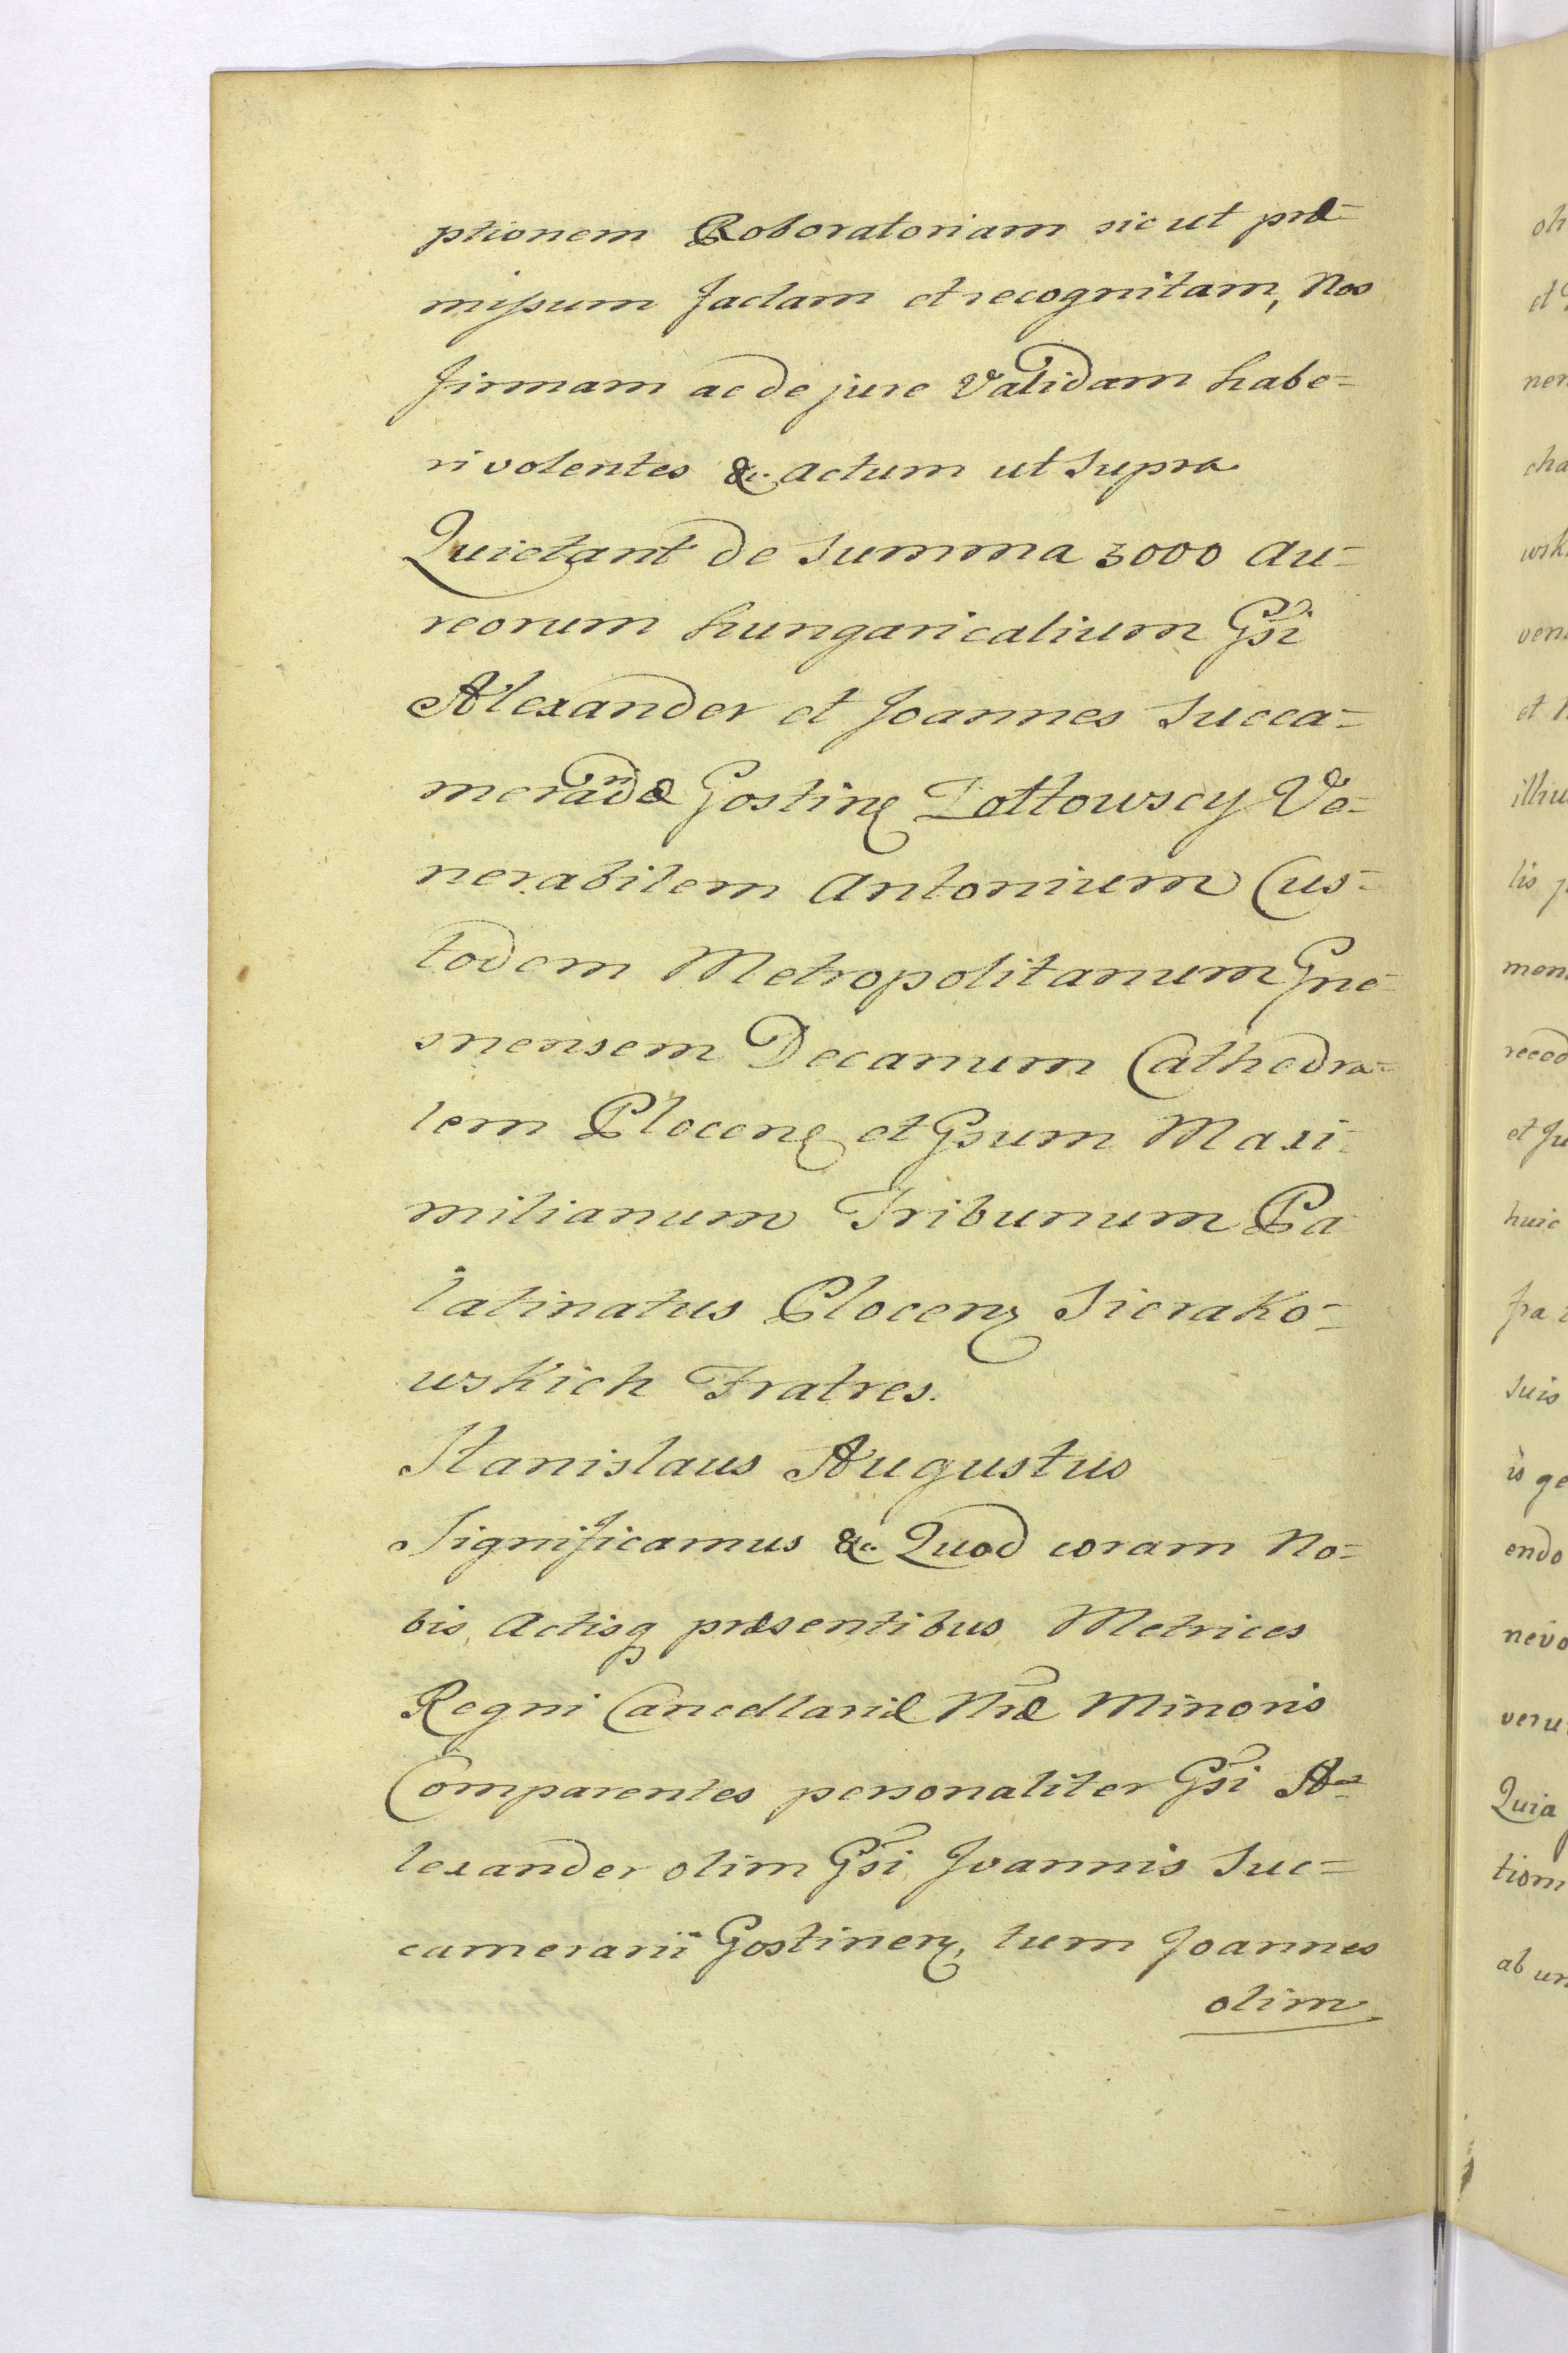 ptionem Roboratoriam sicut præ=
missum factam et recognitam, Nos
firmam ac de jure Validam habe=
ri volentes &c. actum ut supra
Quietant de Summa 3000 au=
reorum hungaricalium Gsi
Alexander et Joannes Succa=
meraridæ Gostinę Zottowscy Ve=
nerabilem Antonium Cus=
todem Metropolitanum Gne=
snensem Decanum Cathedra=
lem Plocenę et Gsum Maxi=
milianum Tribunum Pa
latinatus Plocenę Sierako=
wskich Fratres.
Stanislaus Augustus
Significamus &c. Quod coram No=
bis, Actisq præsentibus Metrices
Regni Cancellariæ Nræ Minoris
Comparentes personaliter Gsi A=
lexander olim Gsi Joannis Suc=
camerarii Gostinenę, tum Joannes
olim